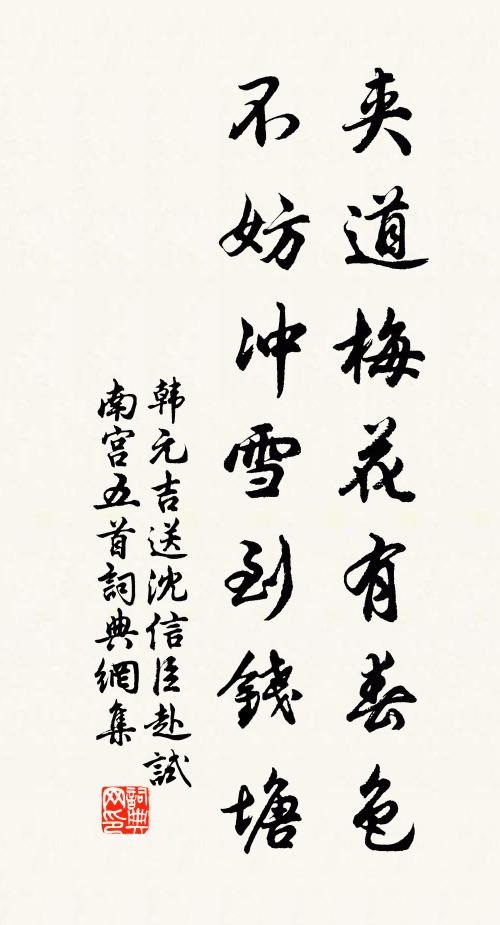 夾道梅花有春色
不妨冲雪到錢塘
韩元吉送沈信臣赴試
南宮五首詞典網集
詞典
网印